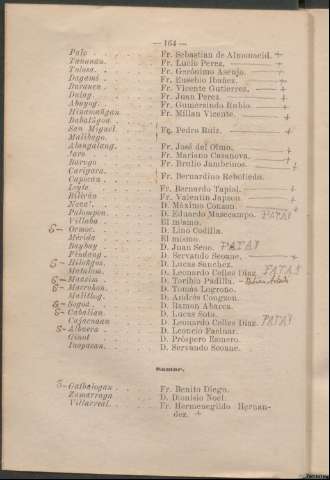 — 164 —
Palo . . . . . . Fr. Sebastian de Almonacid. +
Tananan. . . . . . Fr. Lucio Perez. +
Tolosa. . . . . . Fr. Gerónimo Asenjo. +
Dagami. . . . . . Fr. Eusebio Ibañez. +
Burauen. . . . . . Fr. Vicente Gutierrez. +
Dulag. . . . . . Fr. Juan Perez. +
Abuyog. . . . . . Fr. Gumersindo Rubio +
Hinamañgan. . . . . Fr. Millan Vicente. +
Babatñgon.
San Miguel. . . . . Fr. Pedro Ruiz. +
Malibago.
Alangalang. . . . . Fr. José del Olmo. +
Jaro . . . . . . Fr. Mariano Casanova. +
Barugo . . . . . . Fr. Brulio Jambrinos. +
Carigara.
Capocan. . . . . . Fr. Bernardino Reboliedo.
Leyte. . . . . . Fr. Bernardo Tapiol. +
Biliran . . . . . . Fr. Valentin Japson. +
Naval. . . . . . D. Máximo Conzon
Palompon. . . . . D. Eduardo Masecampo. PATAI
Villaba . . . . . El mismo.
S- Ormoc. . . . . . D. Lino Codilla.
Mérida . . . . . . El mismo.
Baybay . . . . . . D. Juan Seno. PATAI
Pindang . . . . . D. Servando Seoane, +
S- Hiloñgos. . . . . D. Lucas Sanchez.
Matalom. . . . . . D. Leonardo Celles Diaz. PATAI
S- Maasim . . . . . D. Toribio Padilla.
S- Macrohon. . . . . D. Tomás Logroño.
Malitbog. . . . . D. Andrés Congzon.
S- Sogod . . . . . . D. Ramon Abarca.
S- Cabalian. . . . . D. Lucas Soto.
Cajagnaan . . . . . D. Leonardo Celles Diaz. PATAI
S- Albuera . . . . . D. Leoncio Facinar.
Ginol . . . . . . D. Próspero Esmero.
Inopacan. . . . . . D. Servando Seoane.
Samar.
S- Catbalogan . . . . Fr. Benito Diego.
Zumarraga . . . . . D. Dionisio Noel.
Villarreal. . . . . Fr. Hermenegildo Hernan-
dez. +